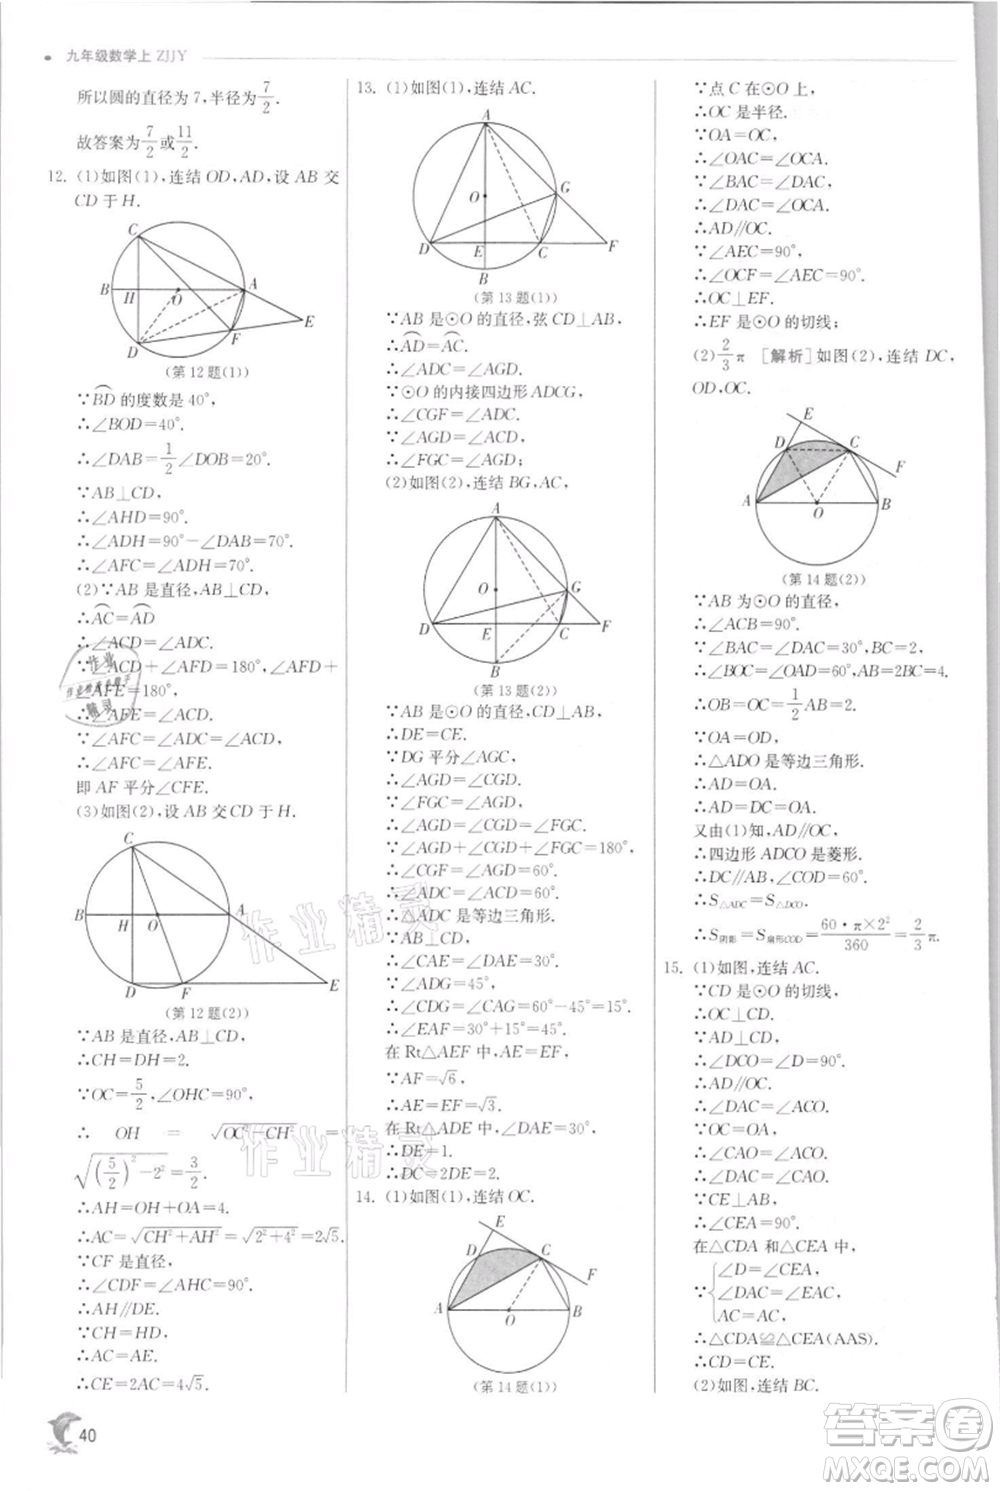 九年级数学上 ZJJY
所以圆的直径为 7，半径为7/2.
故答案为7/2或11/2.
12. (1)如图(1)，连结 OD，AD，设 AB 交
CD 于 H.
C
B
H
O
A
E
D
F
(第 12 题(1))
∵BD⌒ 的度数是 40°，
∴∠BOD=40°.
∴∠DAB=1/2∠DOB=20°.
∵AB⊥CD，
∴∠AHD=90°.
∴∠ADH=90°－∠DAB=70°.
∴∠AFC=∠ADH=70°.
(2)∵AB 是直径，AB⊥CD，
∴AC⌒=AD⌒
∴∠ACD=∠ADC.
∵∠ACD+∠AFD=180°，∠AFD+
∠AFE=180°，
∴∠AFE=∠ACD.
∵∠AFC=∠ADC=∠ACD，
∴∠AFC=∠AFE.
即 AF 平分∠CFE.
(3)如图(2)，设 AB 交 CD 于 H.
C
B
H
O
A
D
F
E
(第 12 题(2))
∵AB 是直径，AB⊥CD，
∴CH=DH=2.
∵OC=5/2，∠OHC=90°，
∴ OH = √(OC²－CH²) =
√((5/2)²－2²)=3/2.
∴AH=OH+OA=4.
∴AC=√(CH²+AH²)=√(2²+4²)=2√5.
∵CF 是直径，
∴∠CDF=∠AHC=90°.
∴AH∥DE.
∵CH=HD，
∴AC=AE.
∴CE=2AC=4√5.
40
13. (1)如图(1)，连结 AC.
A
G
O
D
E
C
F
B
(第 13 题(1))
∵AB 是⊙O 的直径，弦 CD⊥AB，
∴AD⌒=AC⌒.
∴∠ADC=∠AGD.
∵⊙O 的内接四边形 ADCG，
∴∠CGF=∠ADC.
∵∠AGD=∠ADC，
∴∠FGC=∠AGD；
(2)如图(2)，连结 BG，AC，
A
O
G
D
E
C
F
B
(第 13 题(2))
∵AB 是⊙O 的直径，CD⊥AB，
∴DE=CE.
∵DG 平分∠AGC，
∴∠AGD=∠CGD.
∵∠FGC=∠AGD，
∴∠AGD=∠CGD=∠FGC.
∵∠AGD+∠CGD+∠FGC=180°，
∴∠AGD=60°.
∴∠ADC=∠AGD=60°.
∴△ADC 是等边三角形.
∴∠CAE=30°.
∵∠ADG=45°，
∴∠CDG=∠CAG=60°－45°=15°.
∴∠EAF=30°+15°=45°.
在 Rt△AEF 中，AE=EF，
∵AF=√6，
∴AE=EF=√3.
在 Rt△ADE 中，∠DAE=30°，
∴DE=1.
∴DC=2DE=2.
14. (1)如图(1)，连结 OC.
E
D
C
F
A
O
B
(第 14 题(1))
∵点 C 在⊙O 上，
∴OC 是半径.
∵OA=OC，
∴∠OAC=∠OCA.
∵∠BAC=∠DAC，
∴∠DAC=∠OCA.
∴AD∥OC.
∵∠AEC=90°，
∴∠OCF=∠AEC=90°.
∴OC⊥EF.
∴EF 是⊙O 的切线；
(2)2/3π [解析]如图(2)，连结 DC，
OD，OC.
E
D
C
F
A
O
B
(第 14 题(2))
∵AB 为⊙O 的直径，
∴∠ACB=90°.
∵∠BAC=∠DAC=30°，BC=2，
∴∠BOC=∠OAD=60°，AB=2BC=4.
∴OB=OA=1/2AB=2.
∵OA=OD，
∴△ADO 是等边三角形.
∴AD=OA.
∴AD=DC=OA.
又由(1)知，AD∥OC，
∴四边形 ADCO 是菱形.
∴DC∥AB，∠COD=60°.
∴S△ADC=S△DCO.
∴S阴影=S扇形COD=60·π×2²/360=2/3π.
15. (1)如图，连结 AC.
∵CD 是⊙O 的切线，
∴OC⊥CD.
∵AD⊥CD，
∴∠DCO=∠D=90°.
∴AD∥OC.
∴∠DAC=∠ACO.
∵OC=OA，
∴∠CAO=∠ACO.
∴∠DAC=∠CAO.
∵CE⊥AB，
∴∠CEA=90°.
在△CDA 和△CEA 中，
∠D=∠CEA，
∵∠DAC=∠EAC，
AC=AC，
∴△CDA≌△CEA(AAS).
∴CD=CE.
(2)如图，连结 BC.
作业精灵
作业精灵
答案卷
MXQE.COM